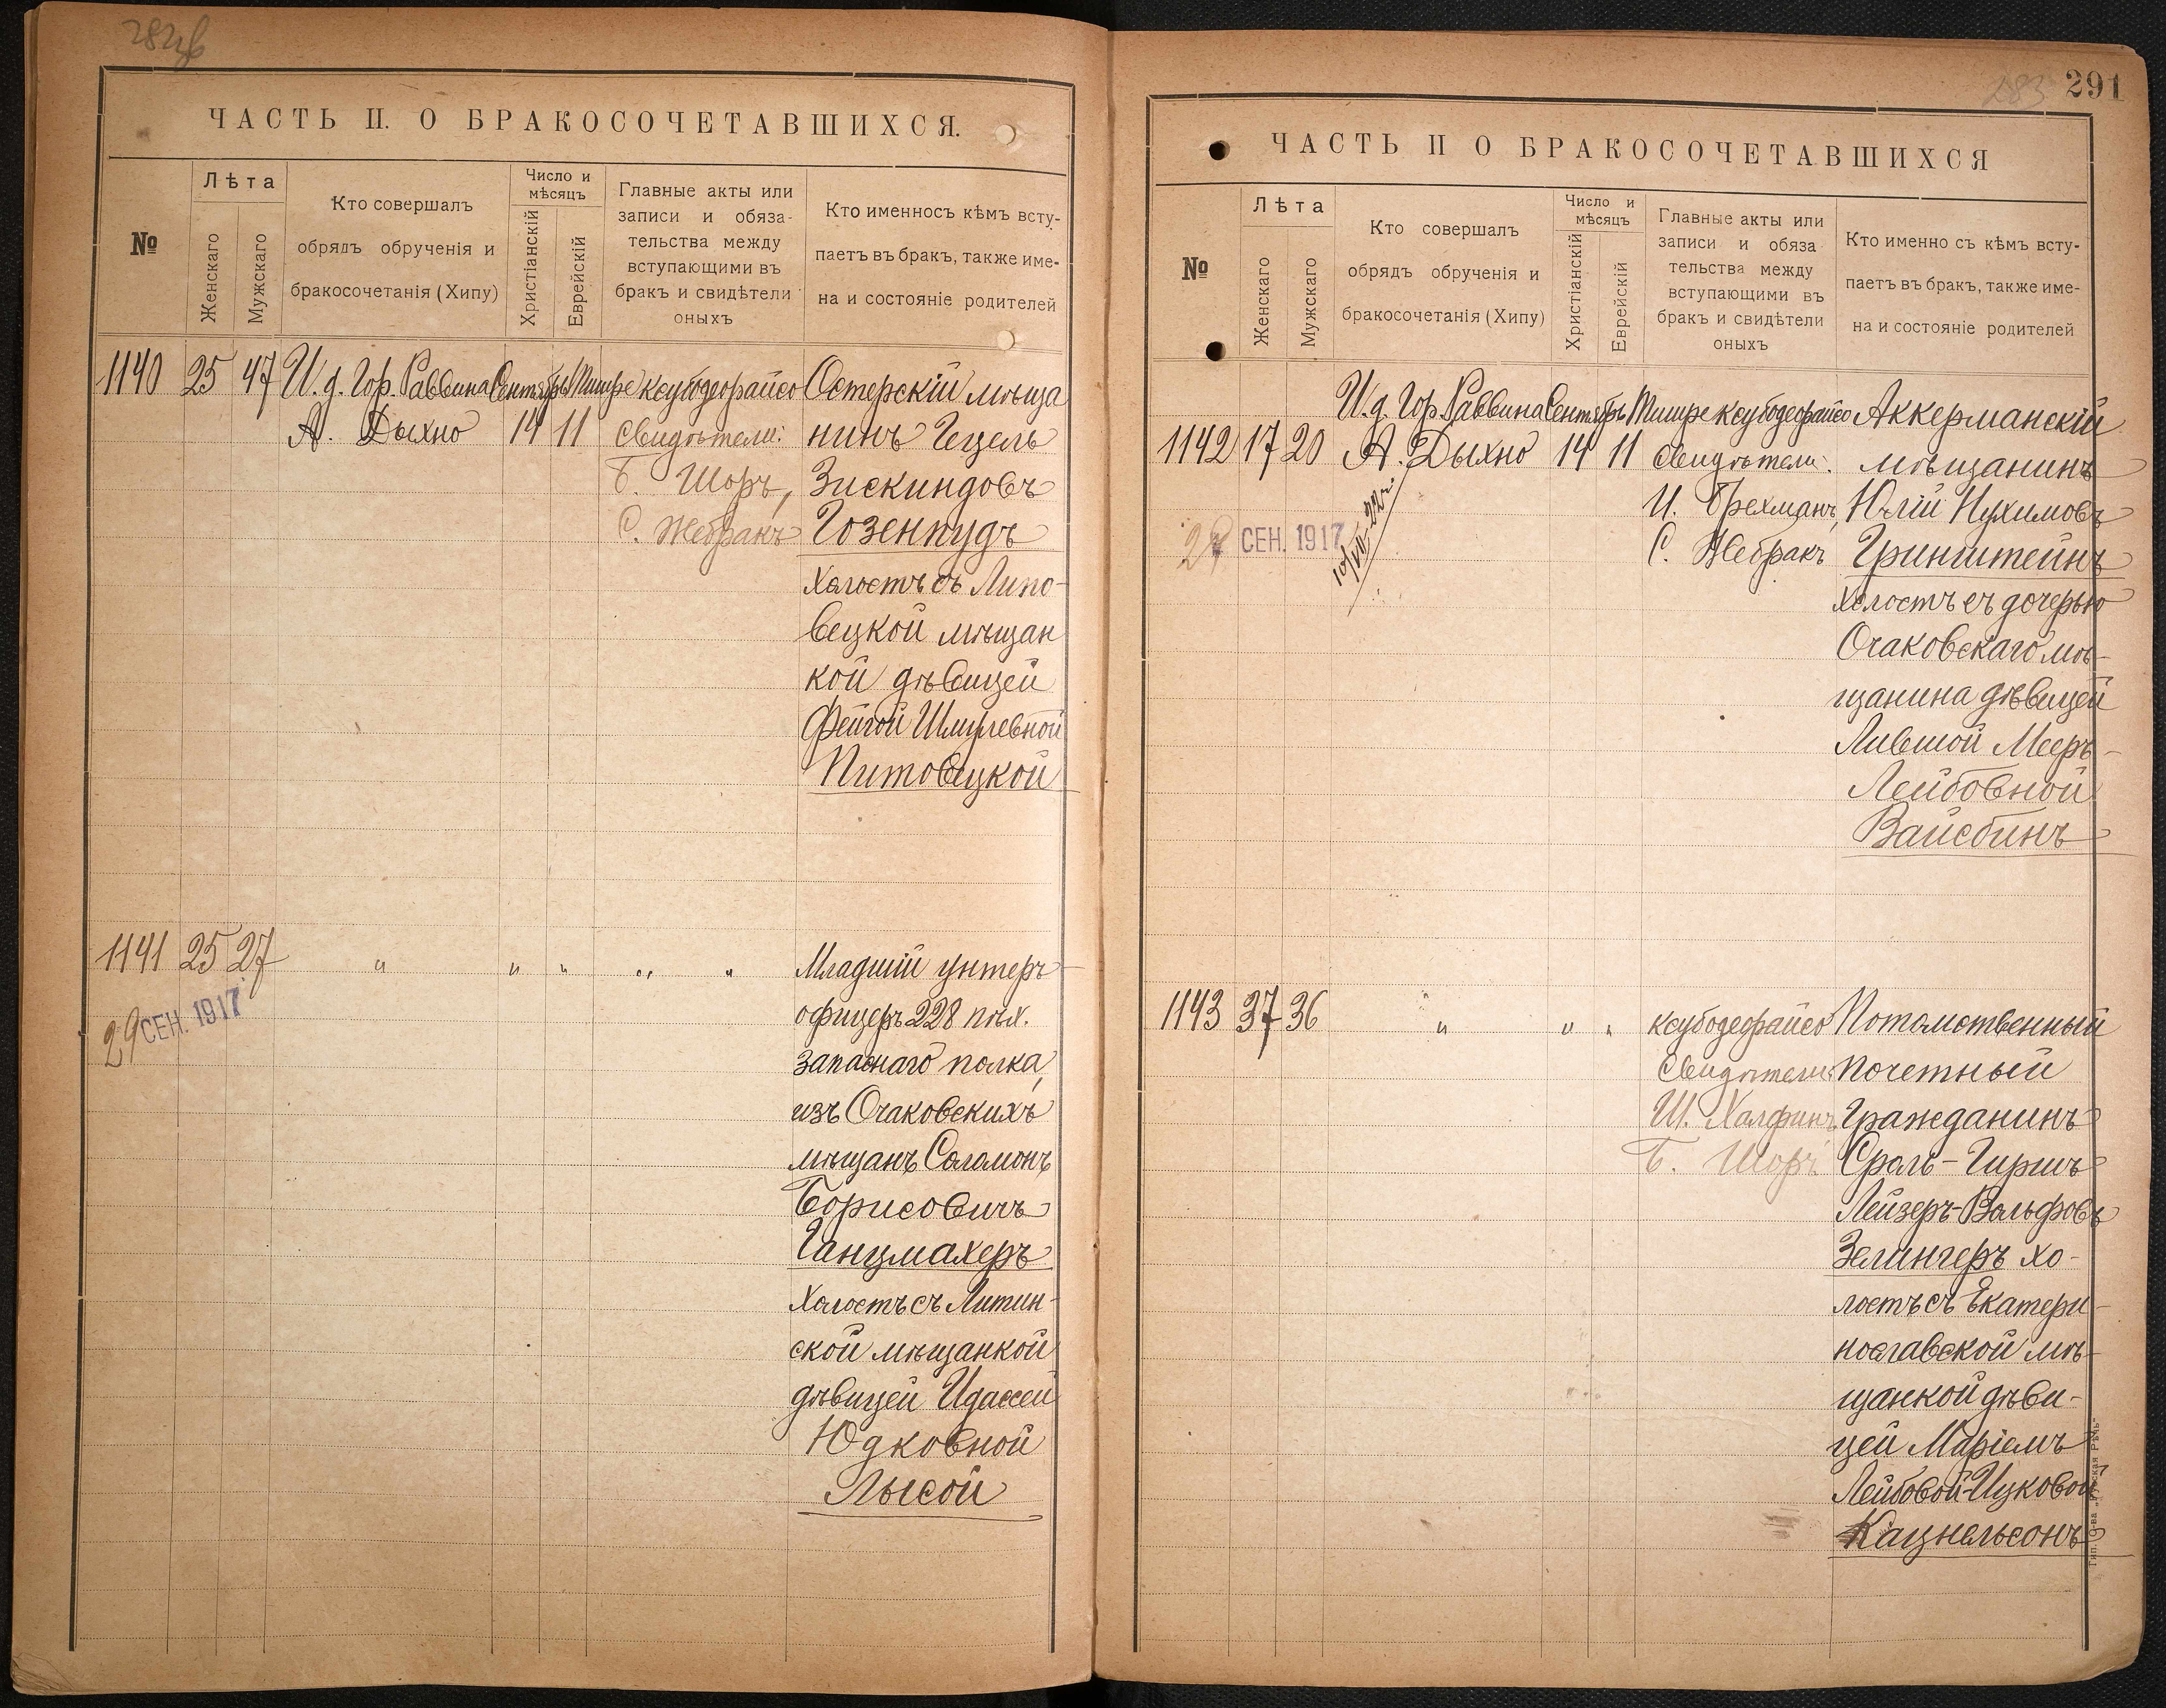 ЧАСТЬ II. О БРАКОСОЧЕТАВШИХСЯ.
№
Лѣта
Женскаго
Мужскаго
Кто совершалъ
обрядъ обрученія и
бракосочетанія (Хипу)
Число и
мѣсяцъ
Христіанскій
Еврейскій
Главные акты или
записи и обяза-
тельства между
вступающими въ
бракъ и свидѣтели
оныхъ
Кто именносъ кѣмъ всту-
паетъ въ бракъ, также име-
на и состояніе родителей
1140 25 47 И.д. Гор. Раввина Сентябрь Тишре ксубодеорайсо Остерскій мѣща
А. Дыхно 14 11 свидѣтели: нинъ Гецель
Б. Шоръ, Зискиндовъ
С. Жебракъ Гозенпудъ
холостъ съ Липо-
вецкой мѣщан
кой дѣвицей
Фейгой Шмулевной
Питовецкой
1141 25 27 " " " " " Младшій унтеръ
29 СЕН. 1917
офицеръ 228 пѣх.
запаснаго полка,
изъ Очаковскихъ
мѣщанъ Соломонъ
Борисовичъ
Ганцмахеръ
холостъ съ Литин-
ской мѣщанкой
дѣвицей Идассей
Юдковной
Лысой
291
283
ЧАСТЬ II О БРАКОСОЧЕТАВШИХСЯ
№
Лѣта
Женскаго
Мужскаго
Кто совершалъ
обрядъ обрученія и
бракосочетанія (Хипу)
Число и
мѣсяцъ
Христіанскій
Еврейскій
Главные акты или
записи и обяза
тельства между
вступающими въ
бракъ и свидѣтели
оныхъ
Кто именно съ кѣмъ всту-
паетъ въ бракъ, также име-
на и состояніе родителей
И.д. Гор. Раввина Сентябрь Тишре ксубодеорайсо Аккерманскій
1142 17 20 А. Дыхно 14 11 свидѣтели: мѣщанинъ
И. Брехманъ, Юлій Нухимовъ
СЕН. 1917
С. Жебракъ Гринштейнъ
холостъ съ дочерью
Очаковскаго мѣ-
щанина дѣвицей
Лившой Мееръ-
Лейбовной
Вайсбинъ
1143 37 36 " " " ксубодеорайсо Потомственный
свидѣтели: почетный
Ш. Халфинъ, гражданинъ
Б. Шоръ Сроль-Гиршъ
Лейзеръ-Вольфовъ
Зелингеръ хо-
лостъ съ Екатери-
нославской мѣ-
щанкой дѣви-
цей Маріемъ
Лейбовой-Ицковой
Кацнельсонъ